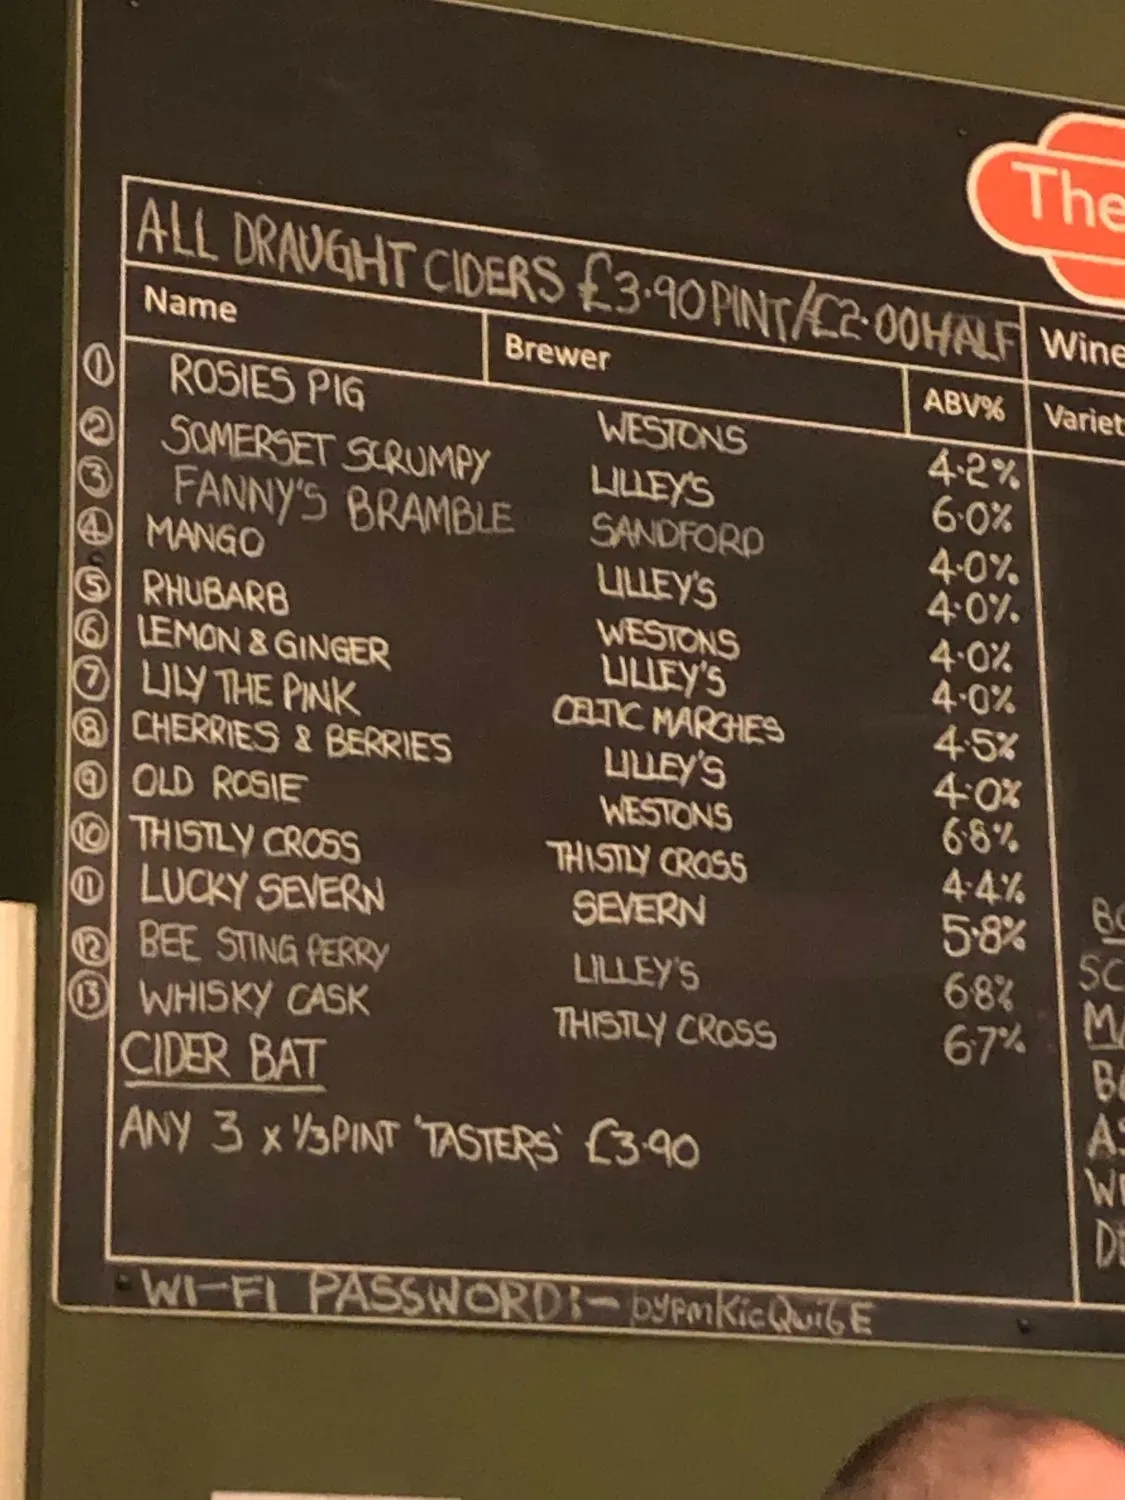 The
ALL DRAUGHT CIDERS £3.90 PINT/£2.00 HALF
Name Brewer ABV%
Wine
Variet
1 ROSIES PIG WESTONS 4.2%
2 SOMERSET SCRUMPY LILLEY'S 6.0%
3 FANNY'S BRAMBLE SANDFORD 4.0%
4 MANGO LILLEY'S 4.0%
5 RHUBARB WESTONS 4.0%
6 LEMON & GINGER LILLEY'S 4.0%
7 LILY THE PINK CELTIC MARCHES 4.5%
8 CHERRIES & BERRIES LILLEY'S 4.0%
9 OLD ROSIE WESTONS 6.8%
10 THISTLY CROSS THISTLY CROSS 4.4%
11 LUCKY SEVERN SEVERN 5.8%
12 BEE STING PERRY LILLEY'S 6.8%
13 WHISKY CASK THISTLY CROSS 6.7%
CIDER BAT
ANY 3 x 1/3 PINT 'TASTERS' £3.90
WI-FI PASSWORD:- bypmKicQwi6E